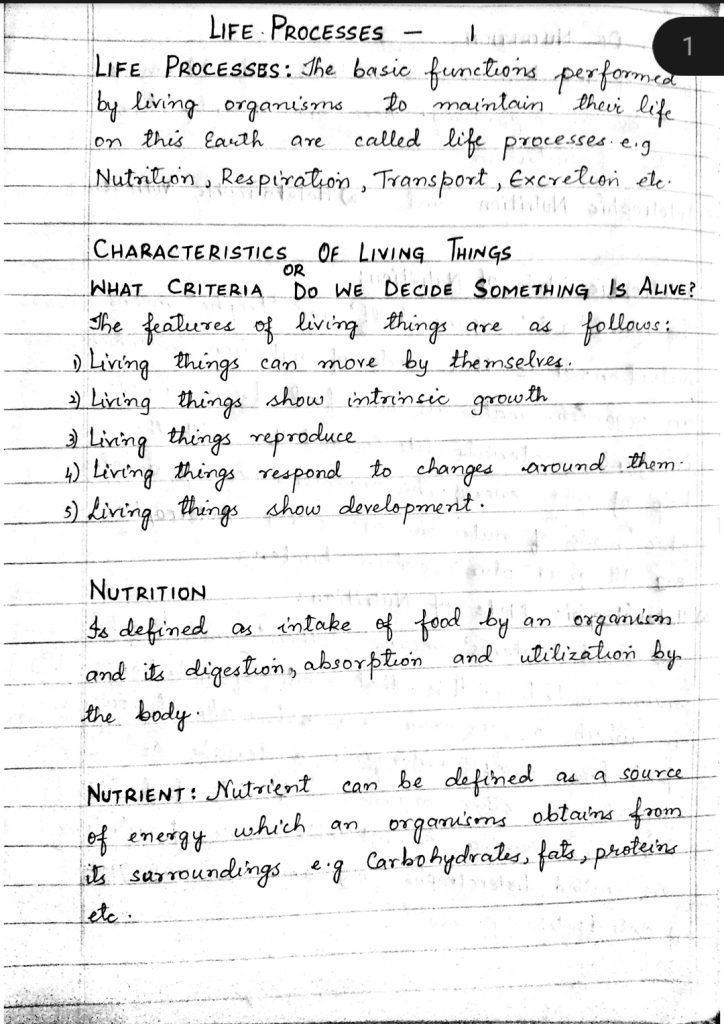 LIFE PROCESSES – 1
1
LIFE PROCESSES: The basic functions performed
by living organisms to maintain their life
on this Earth are called life processes. e.g
Nutrition, Respiration, Transport, Excretion etc.
CHARACTERISTICS OF LIVING THINGS
OR
WHAT CRITERIA DO WE DECIDE SOMETHING IS ALIVE?
The features of living things are as follows:
1) Living things can move by themselves.
2) Living things show intrinsic growth
3) Living things reproduce
4) Living things respond to changes around them.
5) Living things show development.
NUTRITION
Is defined as intake of food by an organism
and its digestion, absorption and utilization by
the body.
NUTRIENT: Nutrient can be defined as a source
of energy which an organisms obtains from
its surroundings e.g Carbohydrates, fats, proteins
etc.